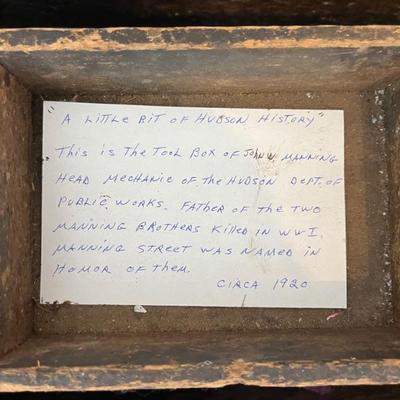 "A LITTLE BIT OF HUDSON HISTORY"
THIS IS THE TOOL BOX OF JOHN W MANNING
HEAD MECHANIC OF THE HUDSON DEPT. OF
PUBLIC WORKS. FATHER OF THE TWO
MANNING BROTHERS KILLED IN WWI.
MANNING STREET WAS NAMED IN
HONOR OF THEM.
CIRCA 1920